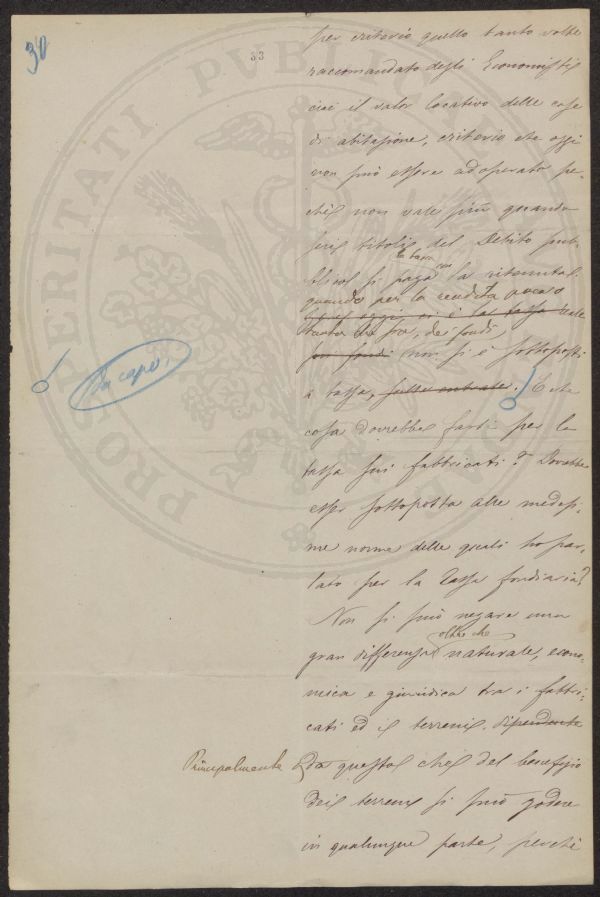 30
33
PROSPERITATI PUBLICAE
per criterio quello tanto volte
raccomandato degli Economisti
cioè il valor locativo delle case
di abitazione, criterio che oggi
non può essere adoperato per
chè non vale più quando
titoli del Debito pub
blico si paga la
la tassa
quando per la rendita
oggi vi è la tassa
dei fondi
non si è sottoposti
a tassa, sulle entrate. E che
Da capo.
cosa dovrebbe farsi per la
tassa sui fabbricati? Dovrebbe
esser sottoposta alle medesi-
me norme delle quali ho par-
lato per la tassa fondiaria?
Non si può negare una
oltre che
gran differenza naturale, econo-
mica e giuridica tra i fabbri-
cati ed i terreni. dipendente
Principalmente da questo che del beneficio
dei terreni si può godere
in qualunque parte, perchè